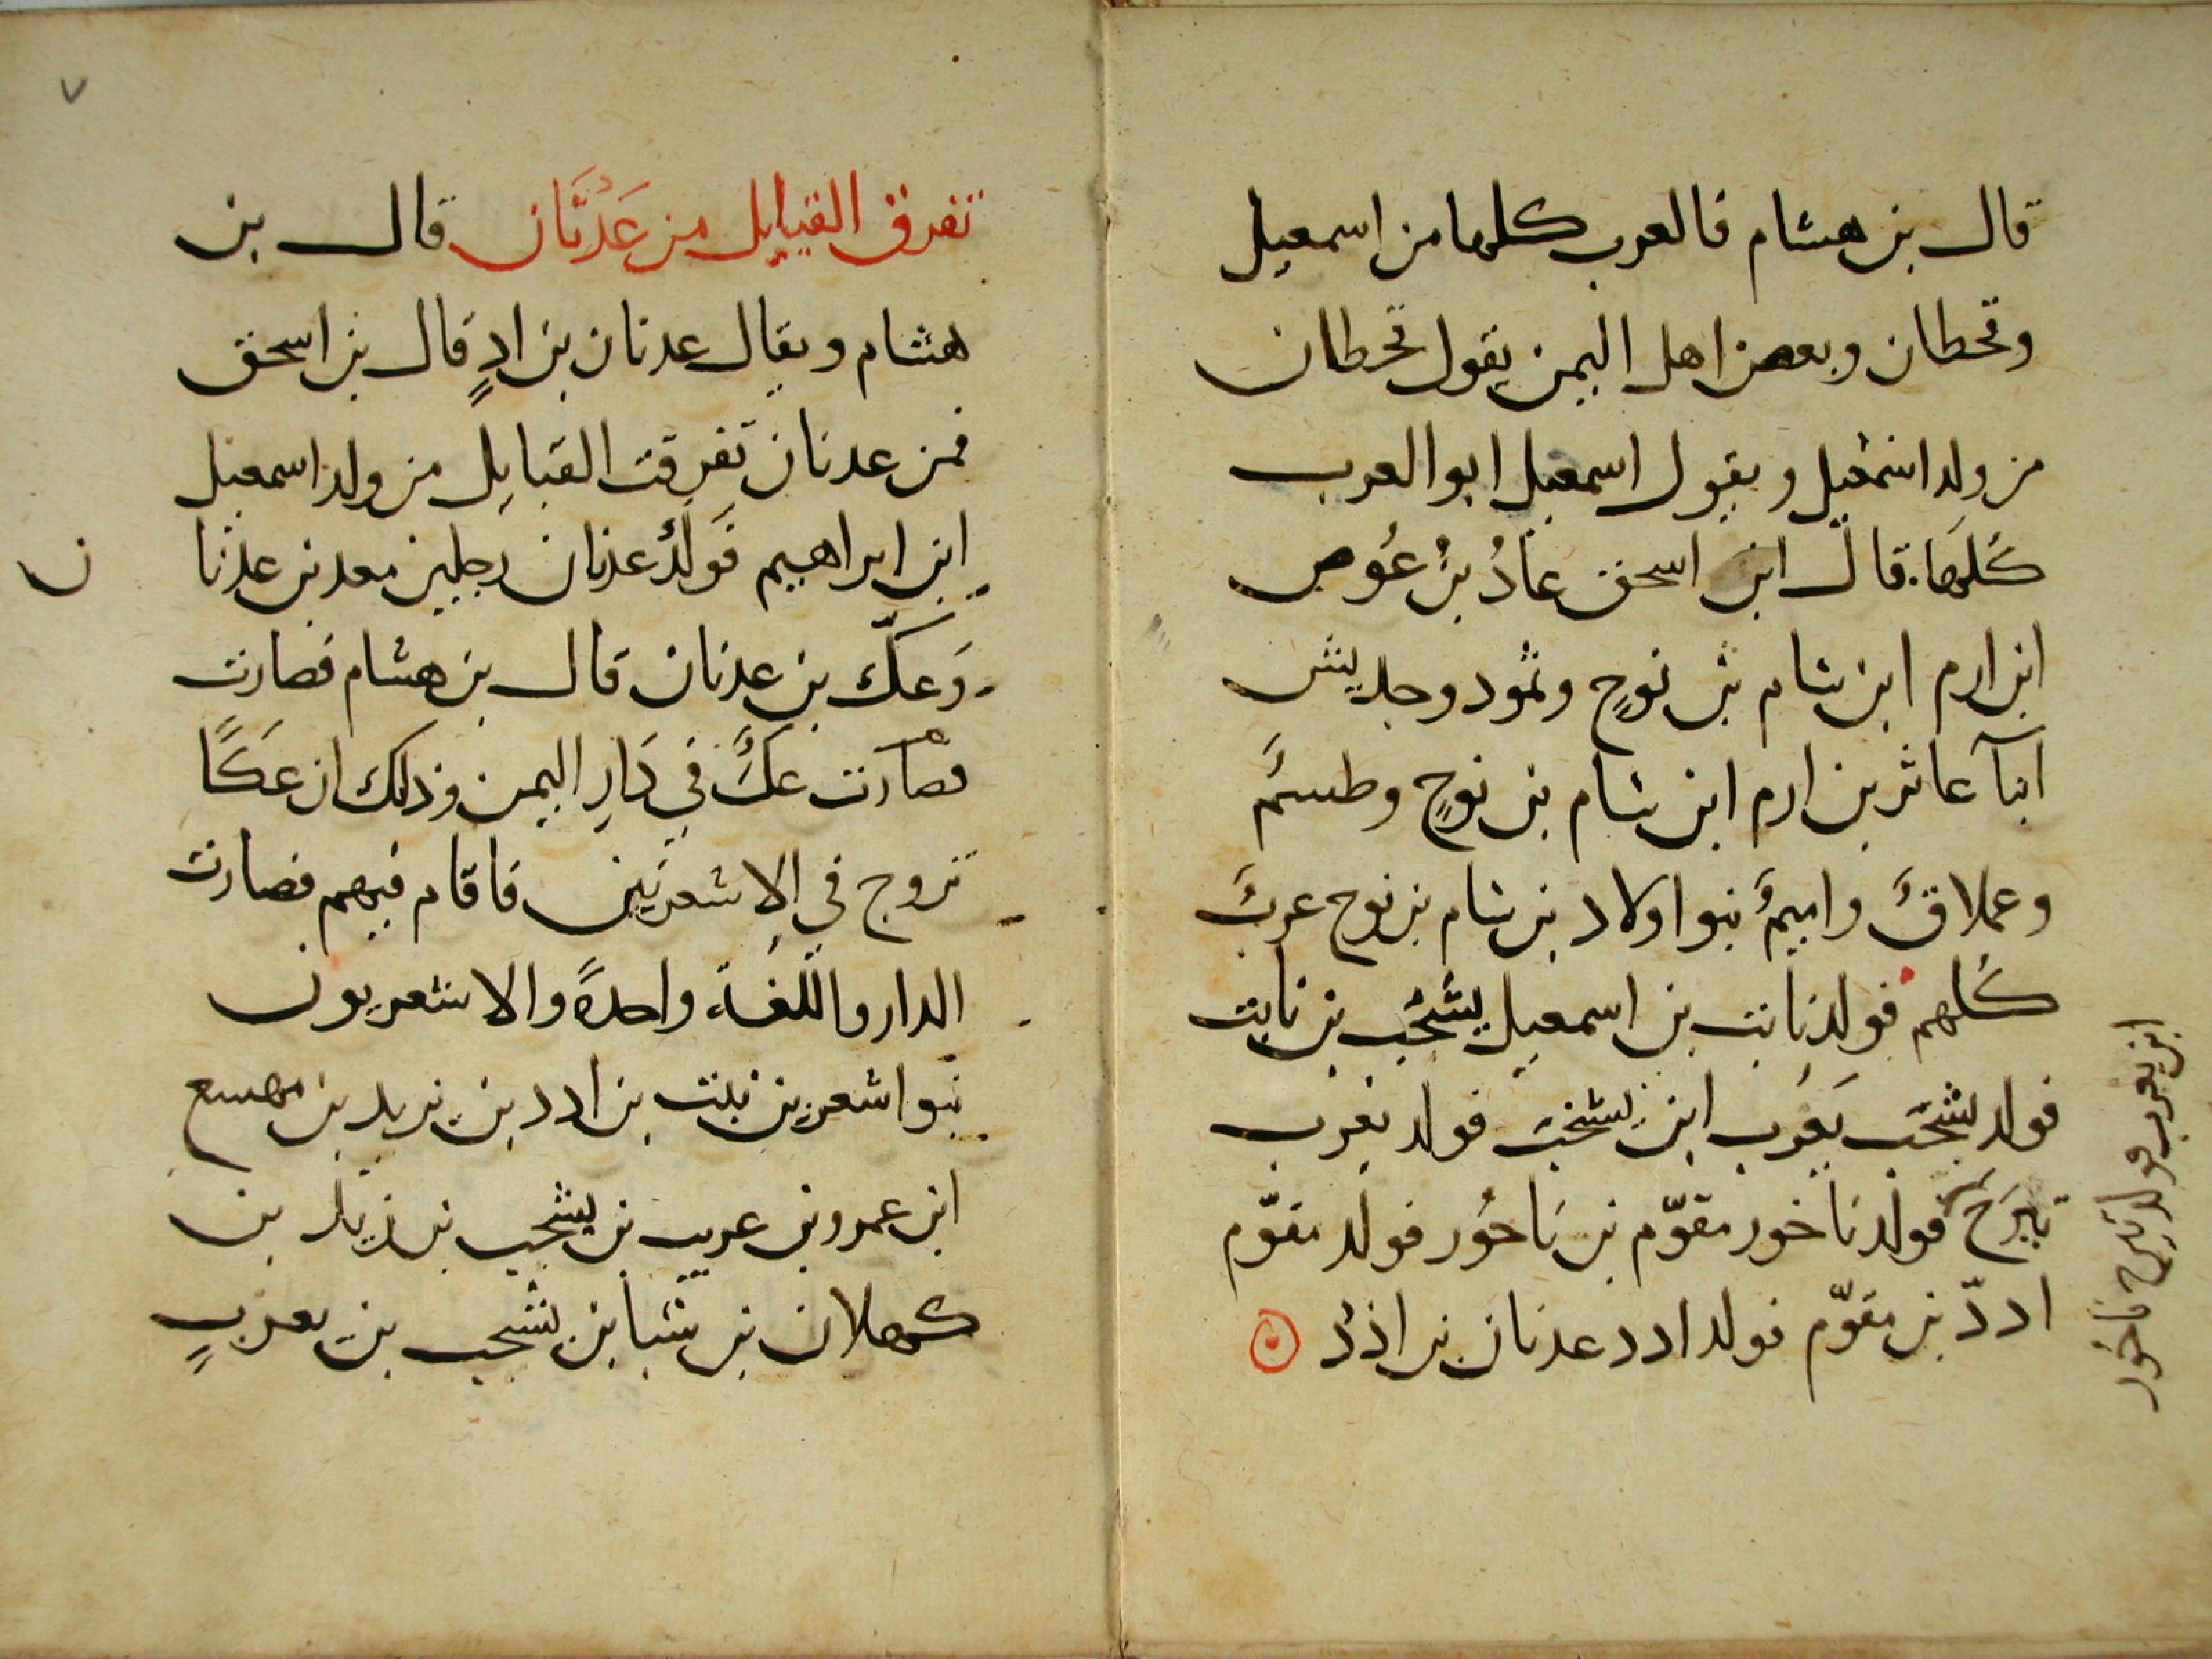 قال بن هشام فالعرب كلها من اسمعيل
وقحطان وبعض اهل اليمن يقول قحطان
من ولد اسمعيل ويقول اسمعيل ابو العرب
كُلها. قال ابن اسحق عادُ بنُ عُوص
ابن ارم ابن سام بن نوحٍ وثمود وجديس
ابنآ عاثر بن ارم ابن سام بن نوحٍ وطسمَ
وعملاقَ واميمَ بنوا ولاد بن سام بن نوح عربَ
كُلهم فولد نابت بن اسمعيل يشجب بن نابت
فولد يشجب يَعرُب ابن يشجب فولد يعرب
تيرَح فولد ناخور مقوّم بن ناحُور فولد مقوّم
اددّ بن مقوّم فولد ادد عدنان بن ادد
ابن يعرب فولد تيرح ناخور
٧
تفرق القبايل من عَدْنَان قال بن
هشام ويقال عدنان بن ادٍ قال بن اسحق
فمن عدنان تفرقت القبايل من ولد اسمعيل
ابن ابراهيم فَولَدُ عدنان رجلين معد بن عدنا
ن
وَعكّ بن عدنان قال بن هشام فصارت
فصارت عكَّ في دَارِ اليمن وذلك ان عَكًا
تزوج في الاشعريين فاقام فيهم فصارت
الدار واللغة واحدةً والاشعريون
بنوا اشعر بن نبت بن ادد بن زيد بن مهسع
ابن عمرو بن عريب بن يشجب بن زيد بن
كهلان بن سبا بن يشجب بن يعربٍ